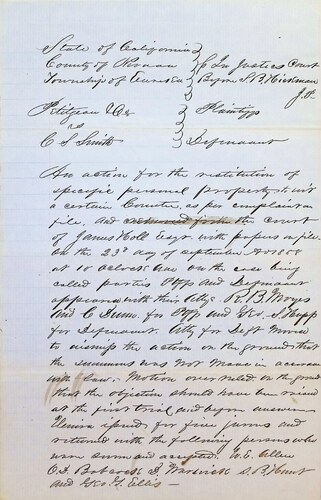 State of California
County of       } In Justices Court
Township of       Before S. B. Hickman
J. P.
Petitjean & Co    Plaintiffs
vs
C S Smith    Defendant
An action for the restitution of
specific personal property to wit
a certain Counter, as per complaint on
file. and removed from the court
of James Holl Esqr. with papers on file.
On the 23d day of September
at 10 oclock a.m. on the case being
called parties Plffs and Defendant
appeared with their Attys R. B. Moyes
and C. Dunn for Plffs and Geo. S.
for Defendant. Atty for Deft moved
to dismiss the action on the grounds that
the summons was not made in accordance
with Law. Motion overruled on the ground
that the objection should have been raised
at the first trial, and before answer
Venire issued for five jurors and
returned with the following persons who
were sworn and accepted. E. Allen
C. D. Babcock D. Warwick S. B. Hunt
and Geo. G. Ellis -